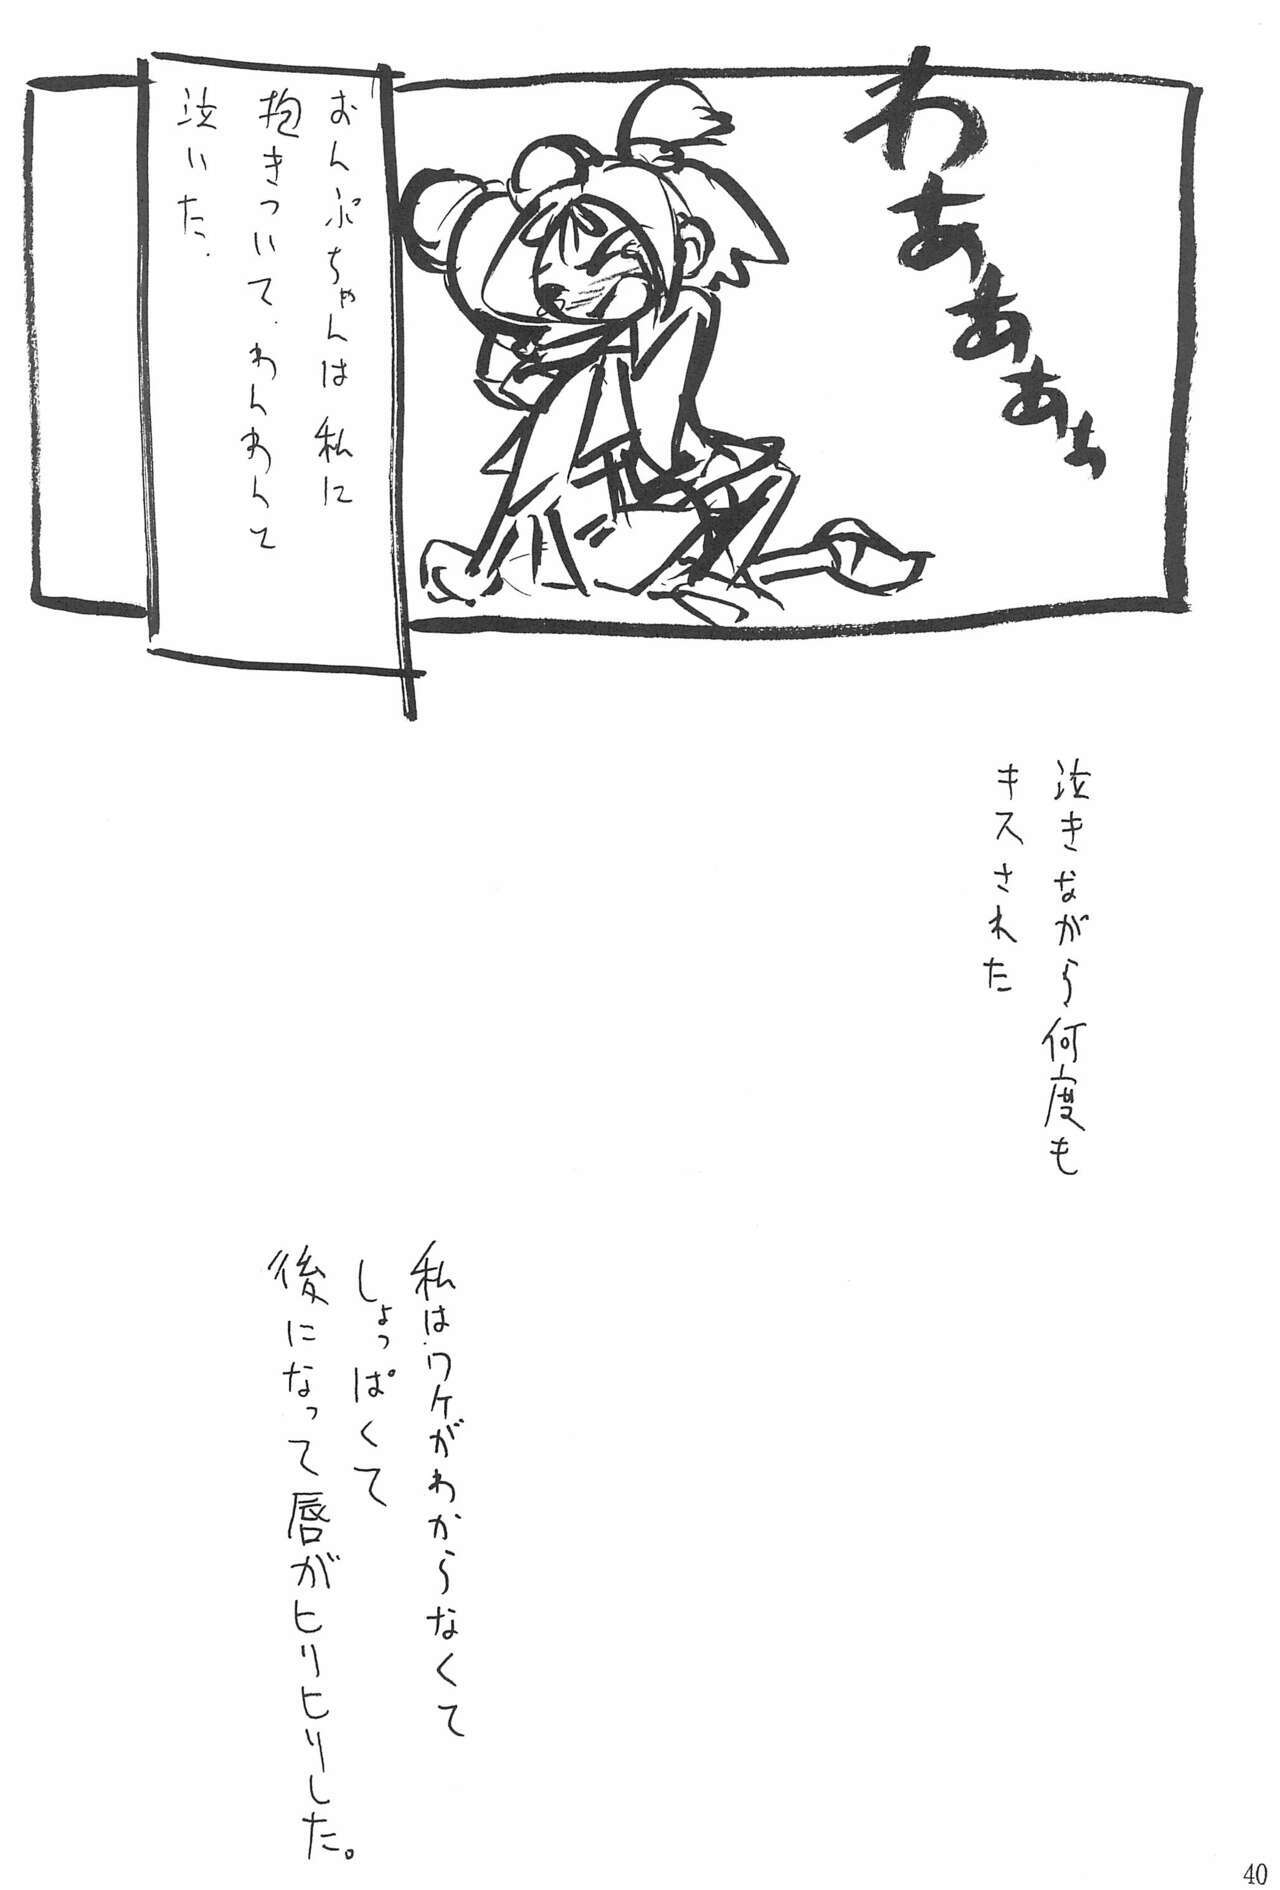 わあぁぁぁ
おんぷちゃんは私に
抱きついて、わんわんて
泣いた.
泣きながら何度も
キスされた
私はワケがわからなくて
しょっぱくて
後になって唇がヒリヒリした。
40